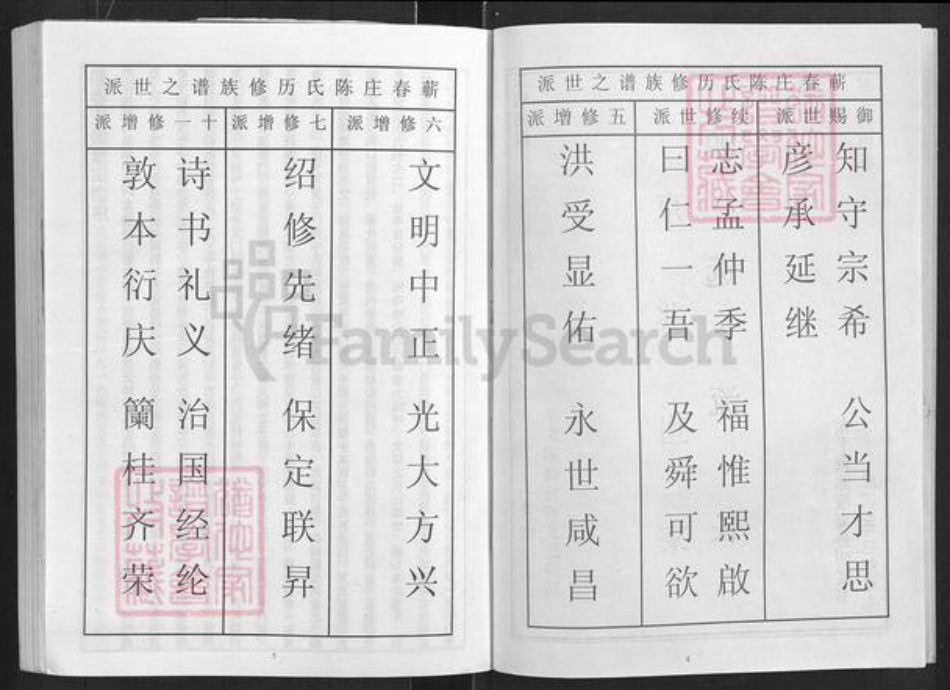 蕲春庄陈氏历修族谱之世派
御赐世派
知守宗希 公当才思
彦承延继
续修世派
志孟仲季 福惟熙啟
曰仁一吾 及舜可欲
五修增派
洪受显佑 永世咸昌
4
蕲春庄陈氏历修族谱之世派
六修增派
文明中正 光大方兴
七修增派
绍修先绪 保定联昇
十一修增派
诗书礼义 治国经纶
敦本衍庆 蘭桂齐荣
5
FamilySearch